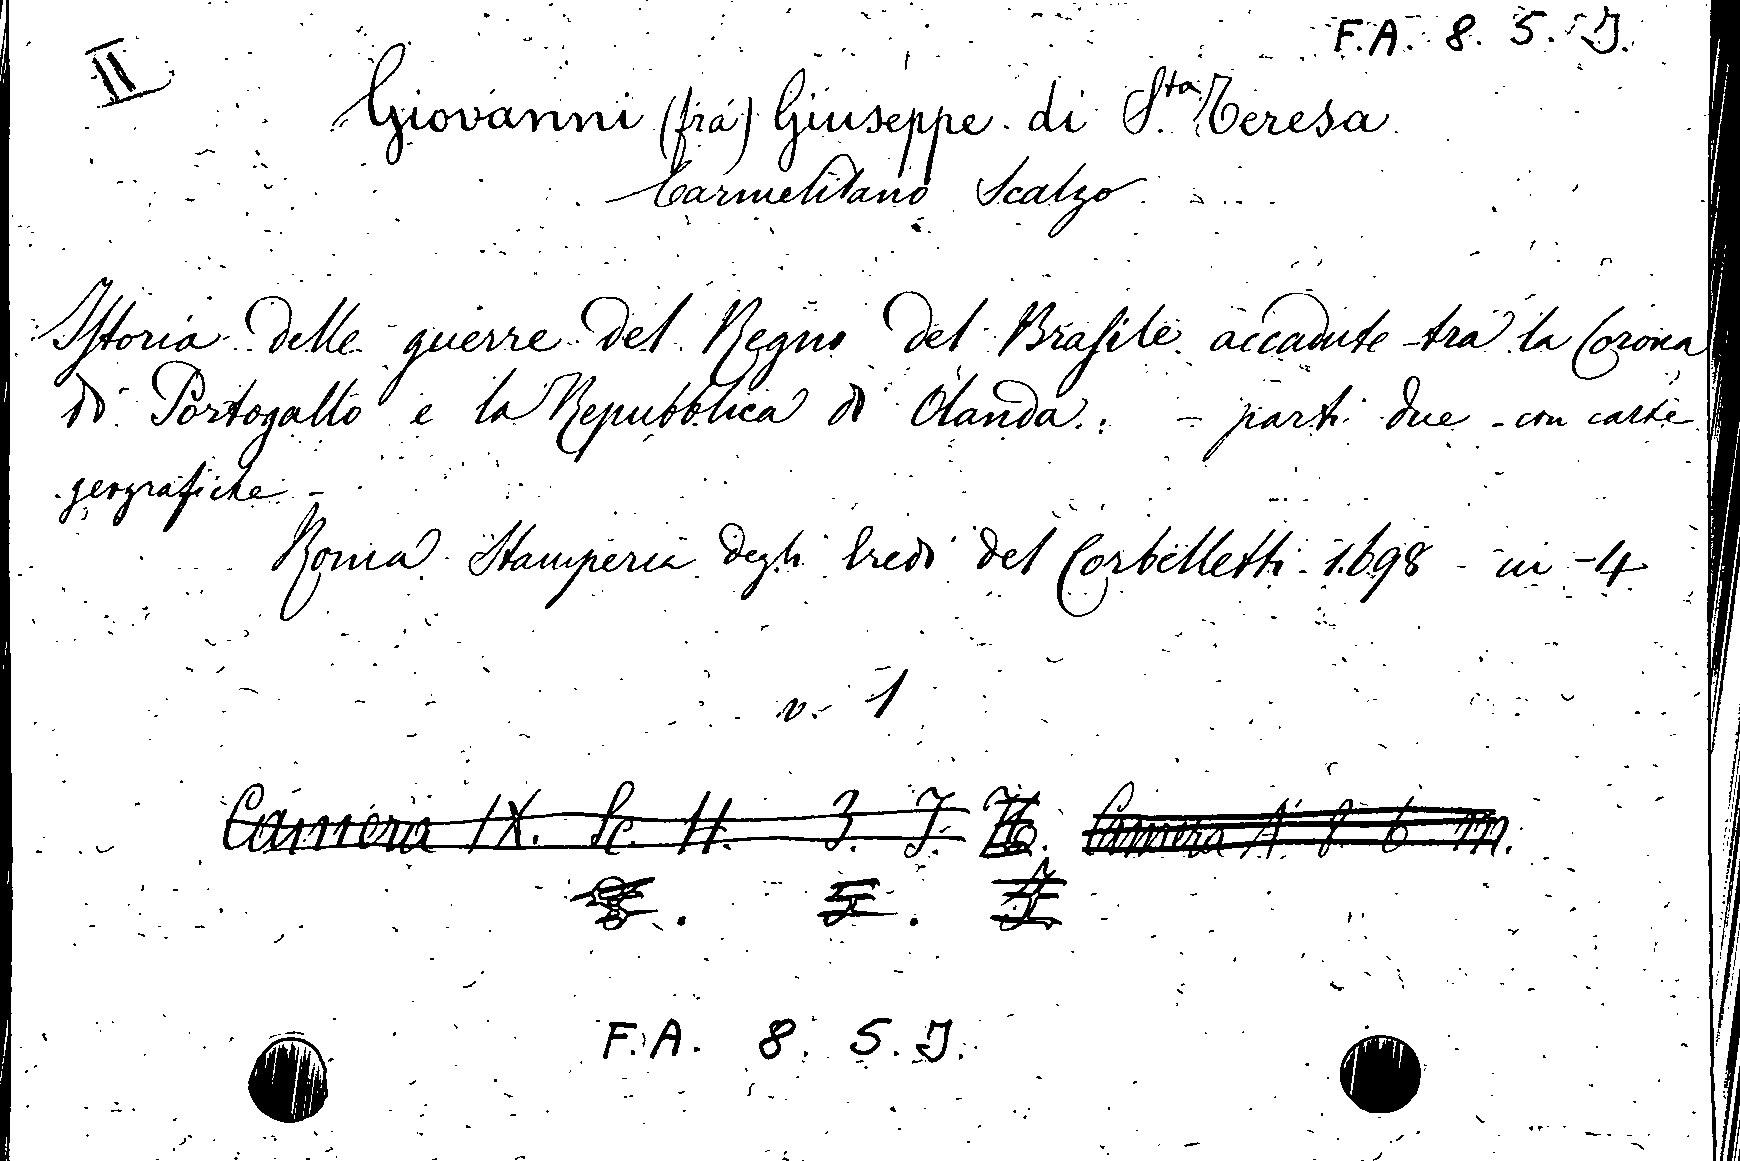 F.A. 8. 5. J.
II
Giovanni (fra) Giuseppe di S.ta Teresa
Carmelitano Scalzo
Istoria delle guerre del Regno del Brasile accadute tra la Corona
di Portogallo e la Repubblica di Olanda. - parti due - con carte
geografiche -
Roma Stamperia degli Eredi del Corbelletti 1698 - in -4
v. 1
Camera IX. Sc. 11. 3. J. Camera A. 8. 6. m.
8. 5. J
F.A. 8. 5. J.